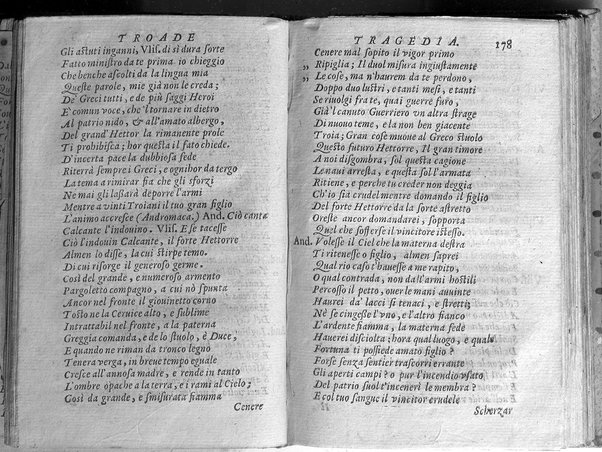 TROADE
Gli astuti inganni, Vlis. di sì dura sorte
Fatto ministro da te prima io chieggio
Che benche ascolti da la lingua mia
Queste parole, mie già non le creda;
De' Greci tutti, e de più saggi Heroi
E' comun voce, che'l tornare in dietro
Al patrio nido, & all'amato albergo,
Del grand'Hettor la rimanente prole
Ti prohibisca; hor questa il fato chiede.
D'incerta pace la dubbiosa fede
Riterrà sempre i Greci, e ognihor da tergo
La tema a rimirar fia che gli sforzi
Ne mai gli lasciarà deporre l'armi
Mentre a vinti Troiani il tuo gran figlio
L'animo accresce (Andromaca.) And. Ciò canta
Calcante l'indouino. Vlis. E se tacesse
Ciò l'indouin Calcante, il forte Hettorre
Almen lo disse, la cui stirpe temo.
Di cui risorge il generoso germe.
Così del grande, e numeroso armento
Pargoletto compagno, a cui nō spunta
Ancor nel fronte il giouinetto corno
Tosto ne la Ceruice alto, e sublime
Intrattabil nel fronte, a la paterna
Greggia comanda, e de lo stuolo, è Duce,
E quando ne riman da tronco legno
Tenera verga, in breue tempo eguale
Cresce all'annosa madre, e rende in tanto
L'ombre opache a la terra, e i rami al Cielo;
Così da grande, e smisurata fiamma
Cenere
TRAGEDIA. 178
Cenere mal sopito il vigor primo
„ Ripiglia; Il duol misura ingiustamente
„ Le cose, ma n'haurem da te perdono,
Doppo duo lustri, e tanti mesi, e tanti
Se riuolgi fra te, quai guerre furo,
Già l'canuto Guerriero vn altra strage
Di nuouo teme, e la non ben giacente
Troia; Gran cose muoue al Greco stuolo
Questo futuro Hettorre, Il gran timore
A noi disgombra, sol questa cagione
Le naui arresta, e questa sol l'armata
Ritiene, e perche tu creder non deggia
Ch'io sia crudel mentre domando il figlio
Del forte Hettorre da la sorte astretto
Oreste ancor domandarei, sopporta
Quel che sofferse il vincitore istesso.
And. Volesse il Ciel che la materna destra
Ti ritenesse o figlio, almen saprei
Qual rio caso t'hauesse a me rapito,
O qual contrada, non da l'armi hostili
Percosso il petto, ouer le mani auuinte
Haurei da' lacci sì tenaci, e stretti;
Nè se cingesse l'vno, e l'altro fianco
L'ardente fiamma, la materna fede
Haurei disciolta; hora qual luogo, e quale
Fortuna ti possiede amato figlio?
Forse senza sentier trascorri errante
Gli aperti campi? o pur l'incendio vsato
Del patrio suol t'incenerì le membra?
E col tuo sangue il vincitor crudele
Scherzar